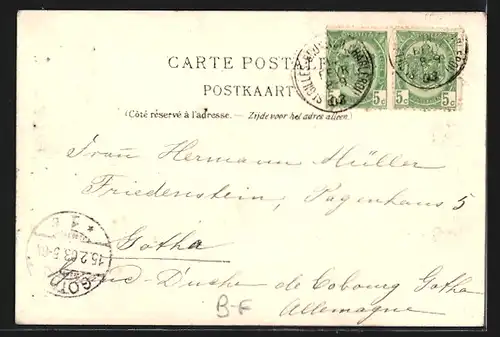 CARTE POSTALE
POSTKAART
(Côté réservé à l'adresse. — Zijde voor het adres alleen.)
5c 5c
Frau Hermann Müller
Friedenstein, Pagenhaus 5
Gotha
Duché de Cobourg Gotha
Allemagne
B-F
15.2.03.5-6
GOTHA